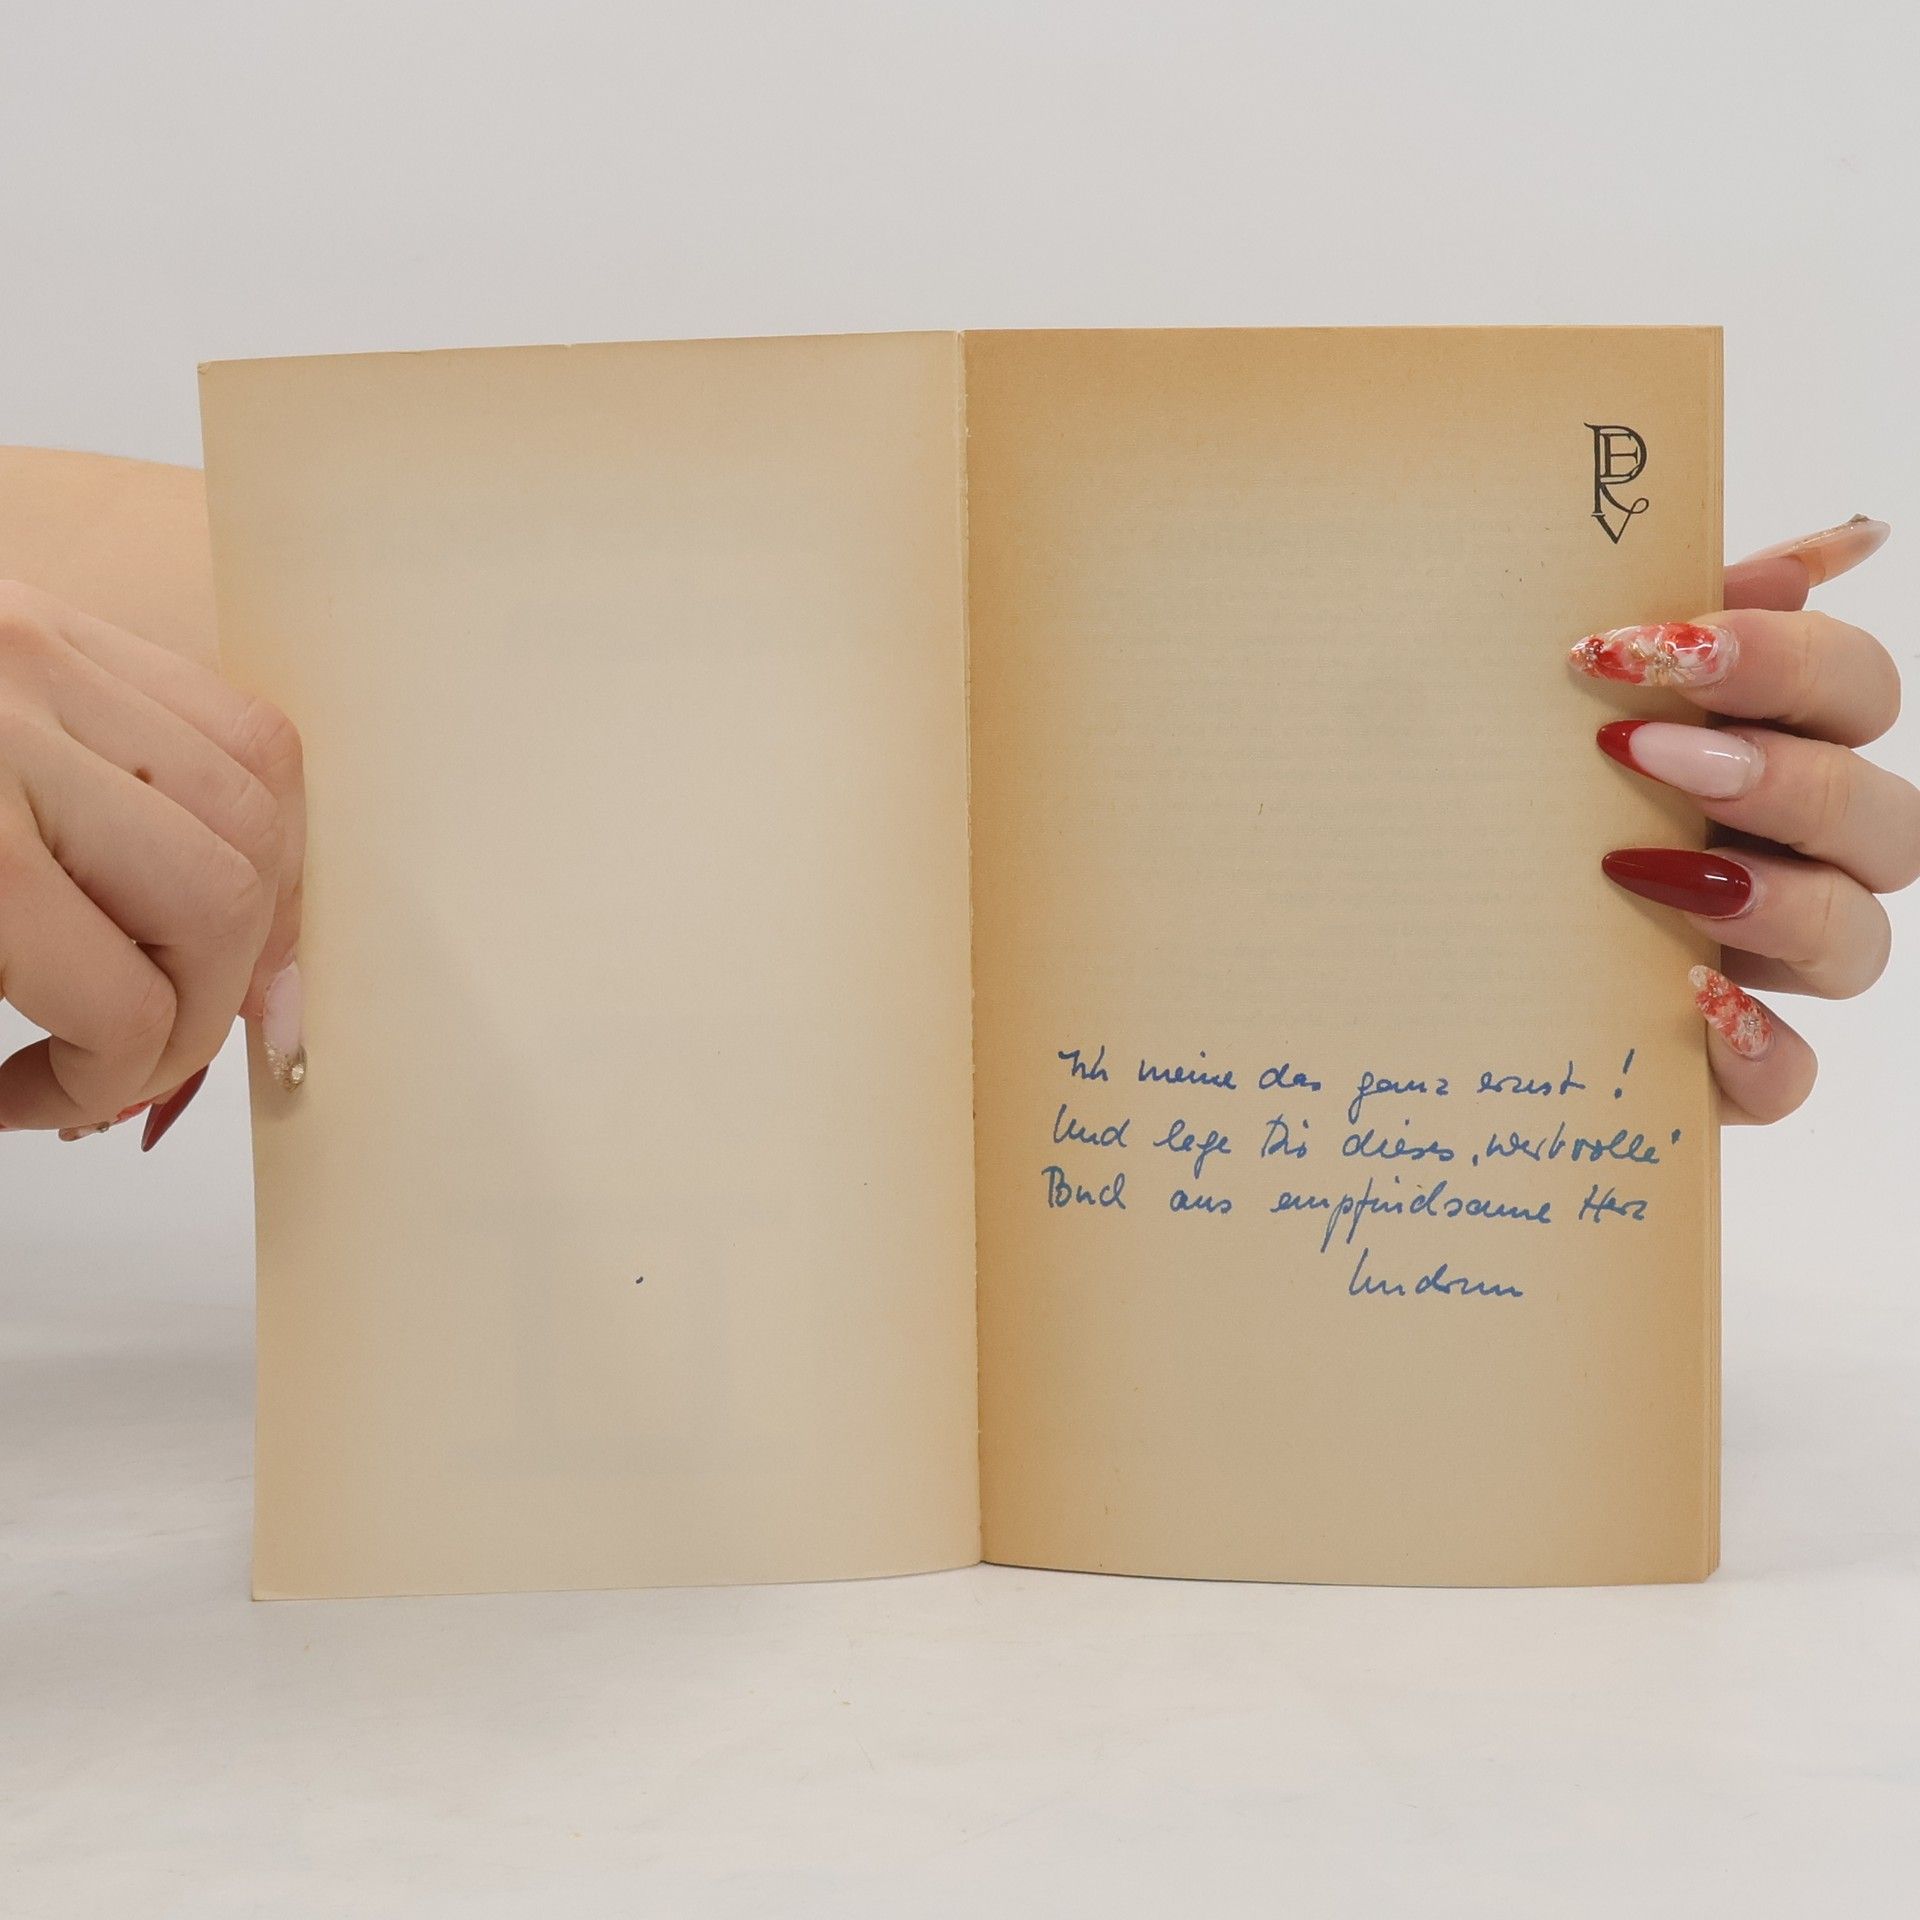 PERV
Ich meine das ganz ernst!
Und lege Dir dieses „wertvolle"
Buch ans empfindsame Herz
Gudrun